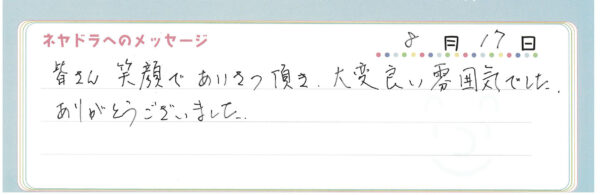 ネヤドラへのメッセージ
8月17日
皆さん 笑顔で ありさつ頂き、大変良い雰囲気でした。
ありがとうございました。